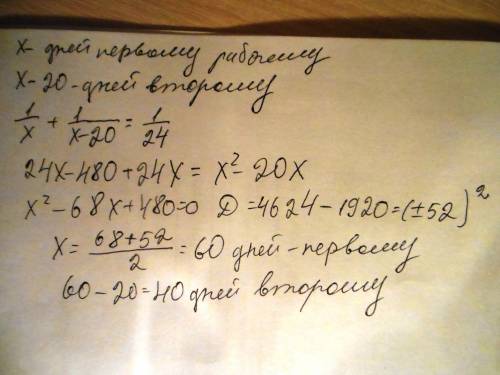 х- дней первому рабочему
х-20-дней второму
1/х + 1/х-20 = 1/24
24х-480+24х = х²-20х
х²-68х+480=0 D=4624-1920=(±52)²
х= 68+52/2 = 60 дней-первому
60-20=40 дней второму